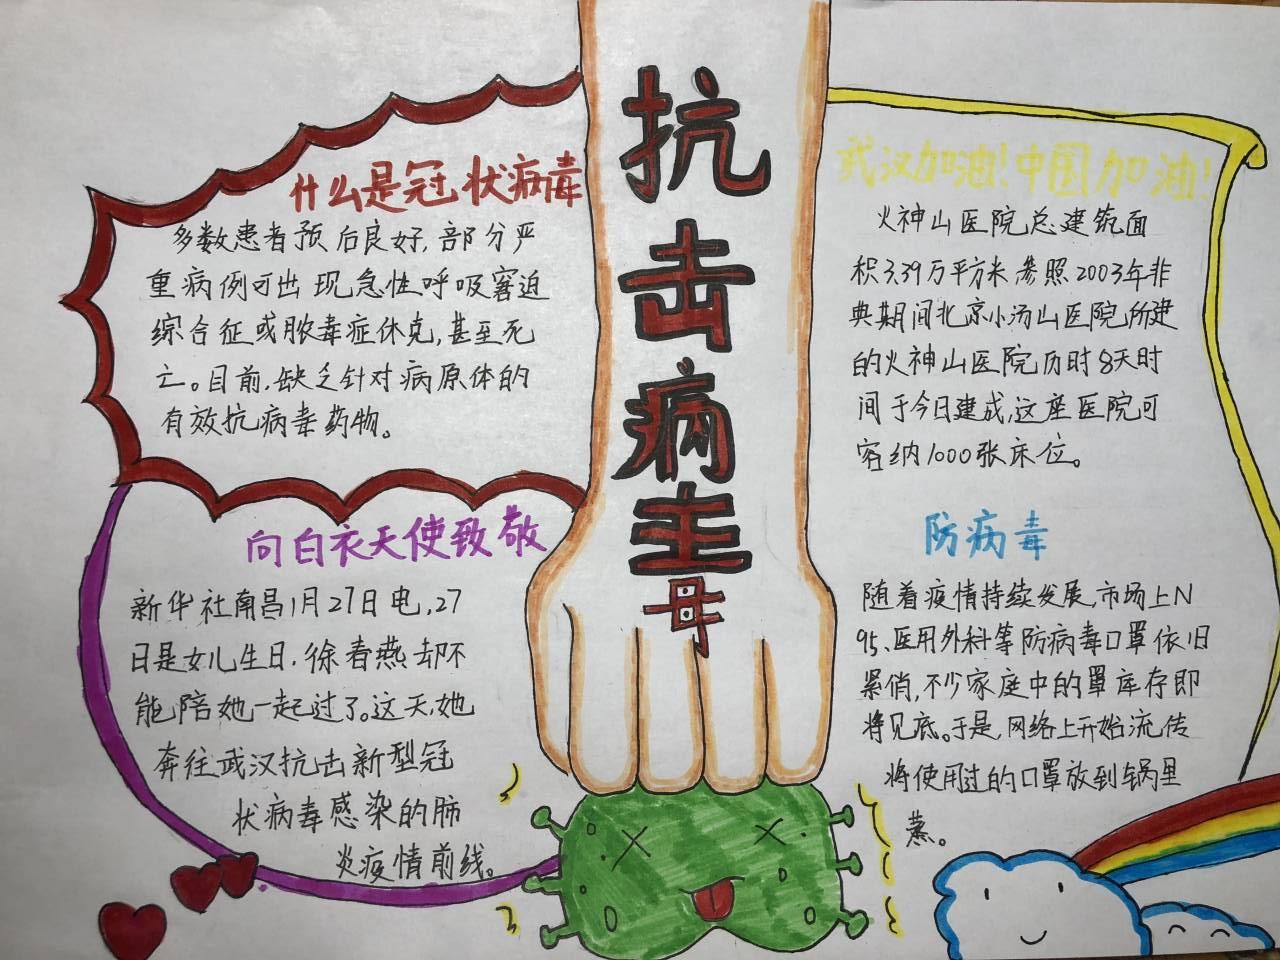 抗击病毒
什么是冠状病毒
多数患者预后良好,部分严
重病例可出现急性呼吸窘迫
综合征或脓毒症休克,甚至死
亡。目前,缺乏针对病原体的
有效抗病毒药物。
向白衣天使致敬
新华社南昌1月27日电,27
日是女儿生日,徐春燕却不
能陪她一起过了。这天,她
奔往武汉抗击新型冠
状病毒感染的肺
炎疫情前线。
武汉加油!中国加油!
火神山医院总建筑面
积3.39万平方米,参照2003年非
典期间北京小汤山医院所建
的火神山医院历时8天时
间于今日建成,这座医院可
容纳1000张床位。
防病毒
随着疫情持续发展,市场上N
95、医用外科等防病毒口罩依旧
紧俏,不少家庭中的罩库存即
将见底。于是,网络上开始流传
将使用过的口罩放到锅里
蒸。